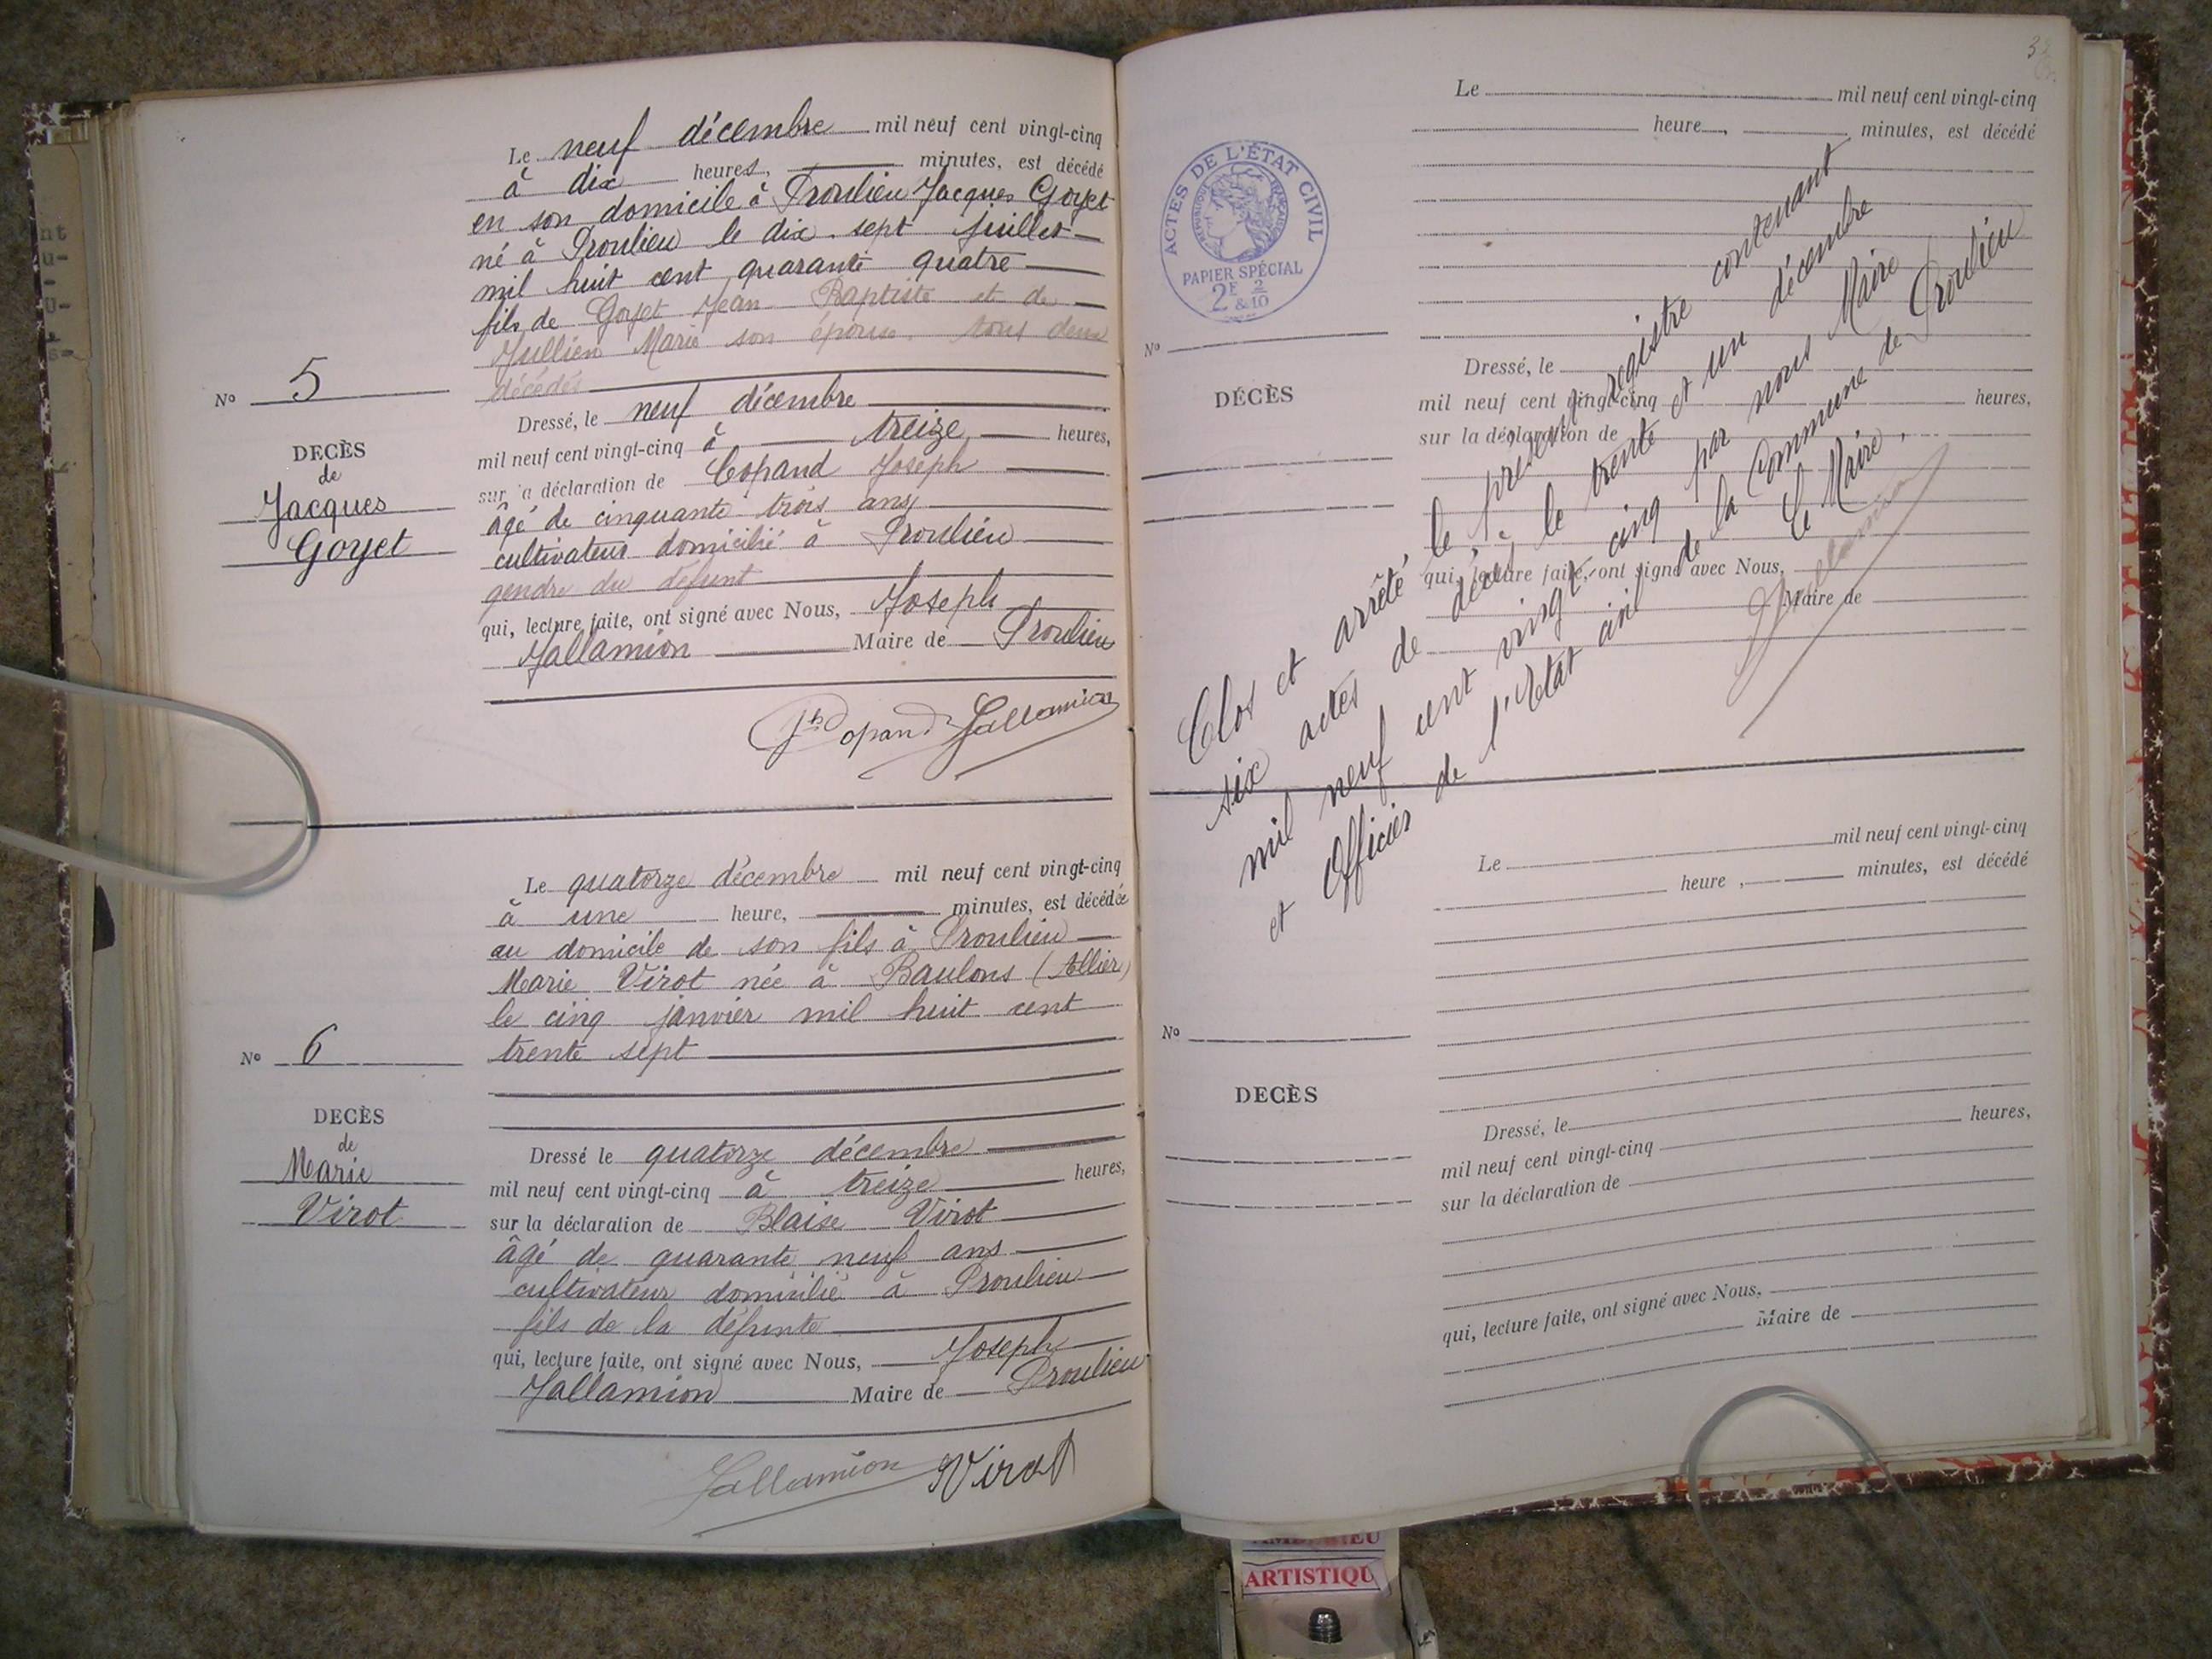 Le neuf décembre mil neuf cent vingt-cinq
à dix heures, minutes, est décédé
en son domicile à Proulieu Jacques Goyet
né à Proulieu le dix sept juillet
mil huit cent quarante quatre
fils de Goyet Jean Baptiste et de
Jullien Marie son épouse. tous deux
décédés
No 5
DECÈS
de
Jacques
Goyet
Dressé, le neuf décembre
mil neuf cent vingt-cinq à treize heures,
sur la déclaration de Copand Joseph
âgé de cinquante trois ans
cultivateur domicilié à Proulieu
gendre du défunt
qui, lecture faite, ont signé avec Nous, Joseph
Jallamion Maire de Proulieu
Jh Copand Jallamion
Le quatorze décembre mil neuf cent vingt-cinq
à une heure, minutes, est décédée
au domicile de son fils à Proulieu
Marie Virot née à Baulons (Allier)
le cinq janvier mil huit cent
trente sept
No 6
DECÈS
de
Marie
Virot
Dressé le quatorze décembre
mil neuf cent vingt-cinq à treize heures,
sur la déclaration de Blaise Virot
âgé de quarante neuf ans
cultivateur domicilié à Proulieu
fils de la défunte
qui, lecture faite, ont signé avec Nous, Joseph
Jallamion Maire de Proulieu
Jallamion Virot
3
Le mil neuf cent vingt-cinq
heure, minutes, est décédé
ACTES DE L'ÉTAT CIVIL
RÉPUBLIQUE FRANÇAISE
PAPIER SPÉCIAL
2E 2
& 10
No
DÉCÈS
Dressé, le
mil neuf cent vingt-cinq heures,
sur la déclaration de
qui, lecture faite, ont signé avec Nous,
Maire de
Clos et arrêté le présent registre contenant
six actes de décès, le trente et un décembre
mil neuf cent vingt-cinq par nous Maire
et Officier de l'Etat civil de la Commune de Proulieu
Le Maire,
Jallamion
Le mil neuf cent vingt-cinq
heure, minutes, est décédé
No
DECÈS
Dressé, le
mil neuf cent vingt-cinq heures,
sur la déclaration de
qui, lecture faite, ont signé avec Nous,
Maire de
ARTISTIQU